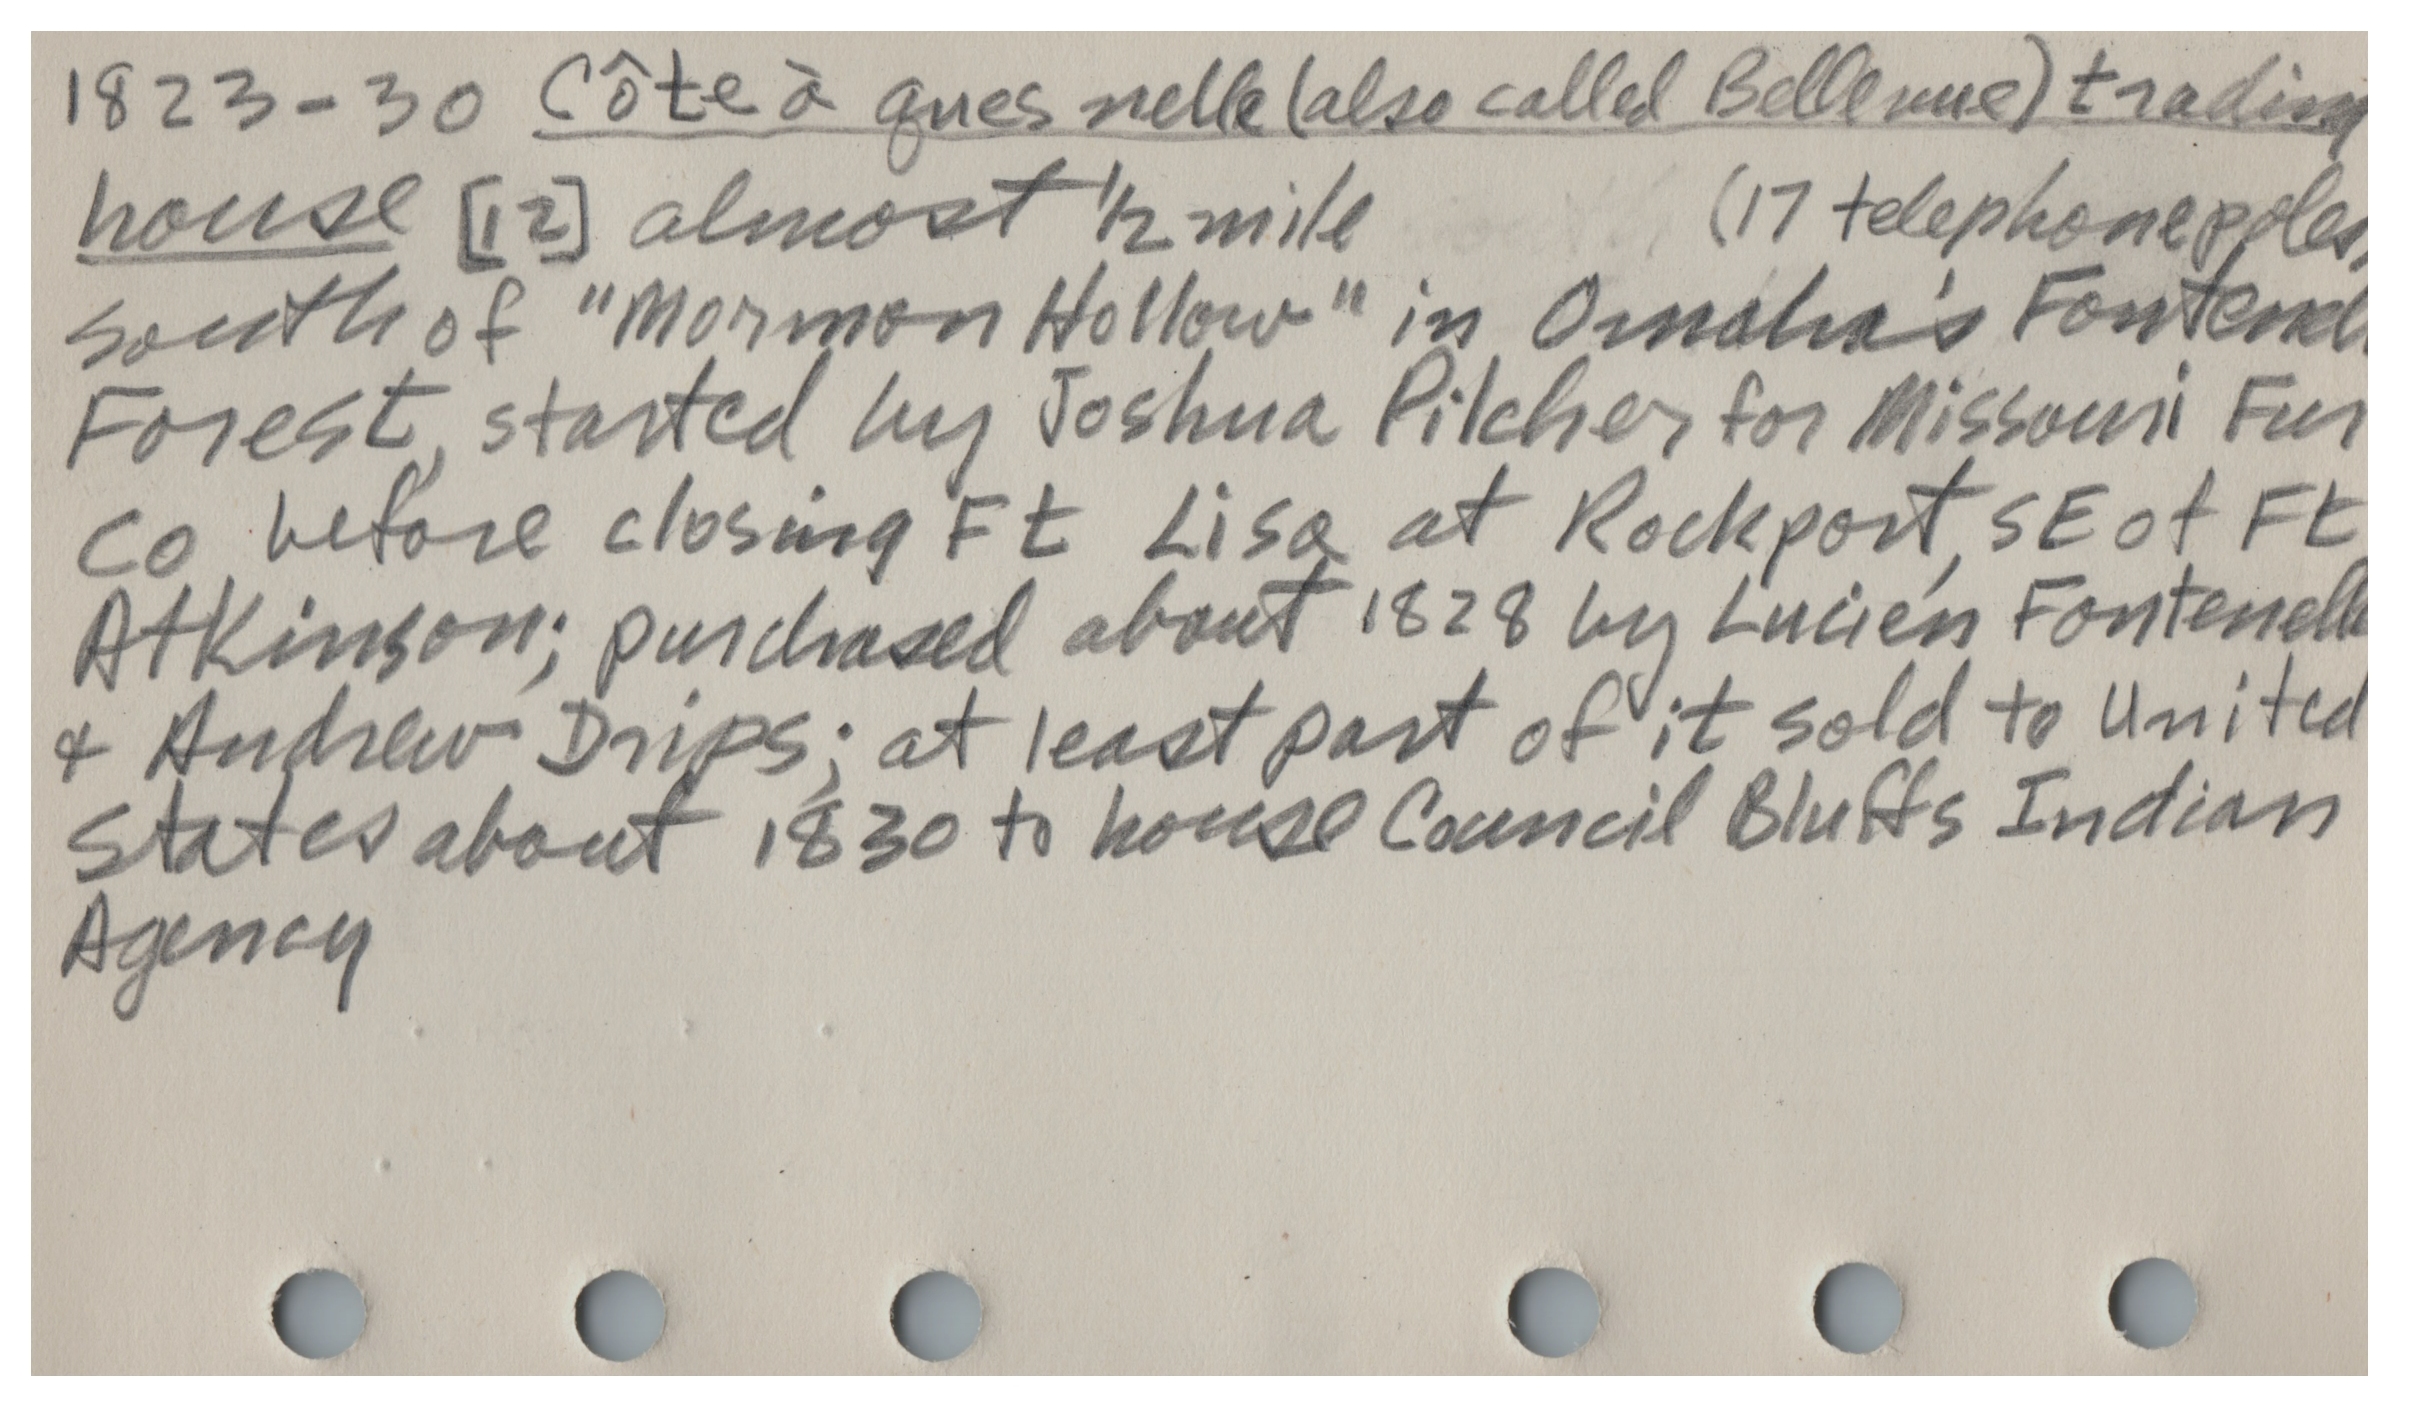 1823-30 Côte à ques nelle (also called Bellevue) trading
house [12] almost 1/2 mile (17 telephone poles)
south of "Mormon Hollow" in Omaha's Fontenel
Forest, started by Joshua Pilcher for Missouri Fur
Co before closing Ft Lisa at Rockport, SE of Ft
Atkinson; purchased about 1828 by Lucien Fontenelle
+ Andrew Drips; at least part of it sold to United
States about 1830 to house Council Bluffs Indian
Agency